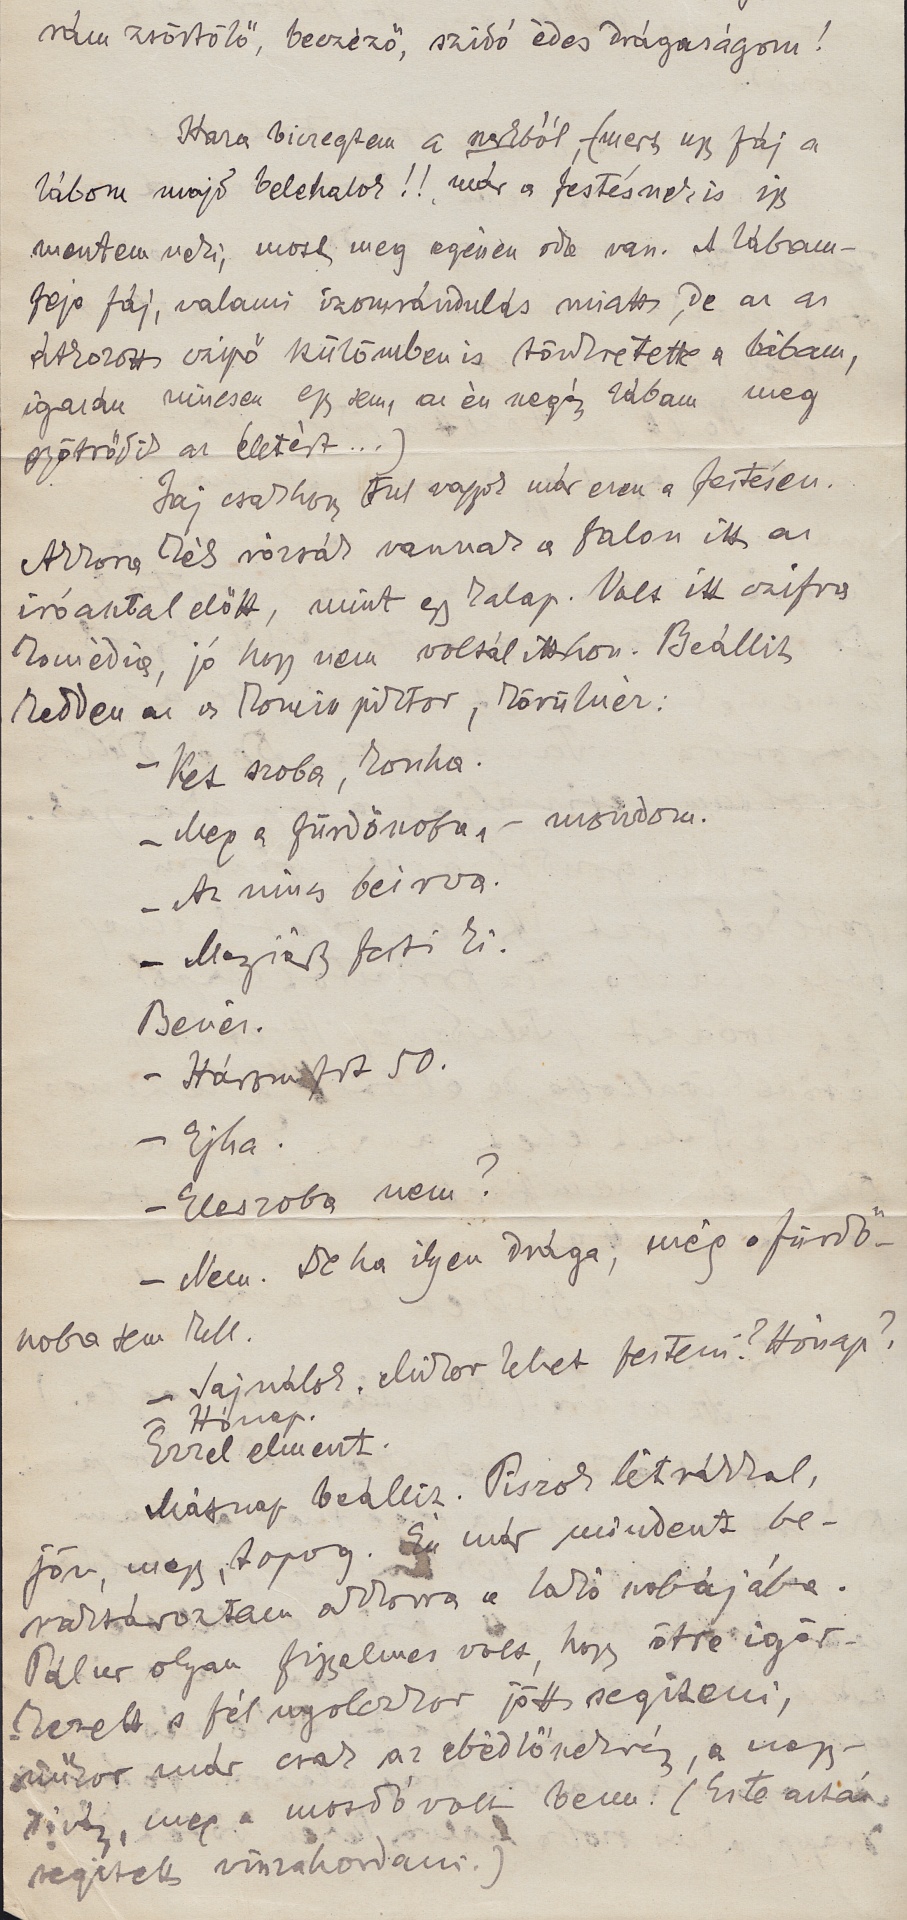 rám zsörtölő, becéző, szidó édes drágaságom!
Haza biczegtem a  (mert ugy fáj a
lábom majd belehalok!! már a festésnek is igy
mentem neki, most meg egészen oda van. A lábam-
feje fáj, valami izomrándulás miatt, de az az
átkozott czipő külömben is tönkretette a lábam,
igazán nincsen egy sem, az én negéz lábam meg
az életért...)
Jaj csakhogy tul vagyok már ezen a festésen.
Akkora kék rózsák vannak a falon itt az
iróasztal előtt, mint egy kalap. Volt itt czifra
komédia, jó hogy nem voltál itthon. Beállit
kedden az a komisz piktor, körülnéz:
- Két szoba, konyha.
- Meg a fürdőszoba, - mondom.
- Az nincs beirva.
- Magiáért festi ki.
Benéz.
- Három frt 50.
- Ejha.
- Éleszoba nem?
- Nem. De ha ilyen drága, még a fürdő-
szoba sem kell.
- Sajnálok. Mikor lehet festeni? Hónap?
- Hónap.
Ezzel elment.
Másnap beállit. Piszok létrákkal,
jön, megy, topog. Én már mindent be-
raktároztam akkorra a Laczi szobájába.
Pálur olyan figyelmes volt, hogy ötre igér-
kezett s fél nyolczkor jött segiteni,
mikor már csak az ebédlőszekrény, a nagy-
diván, meg a mosdó volt benn. (Este aztán
segitett visszahordani.)